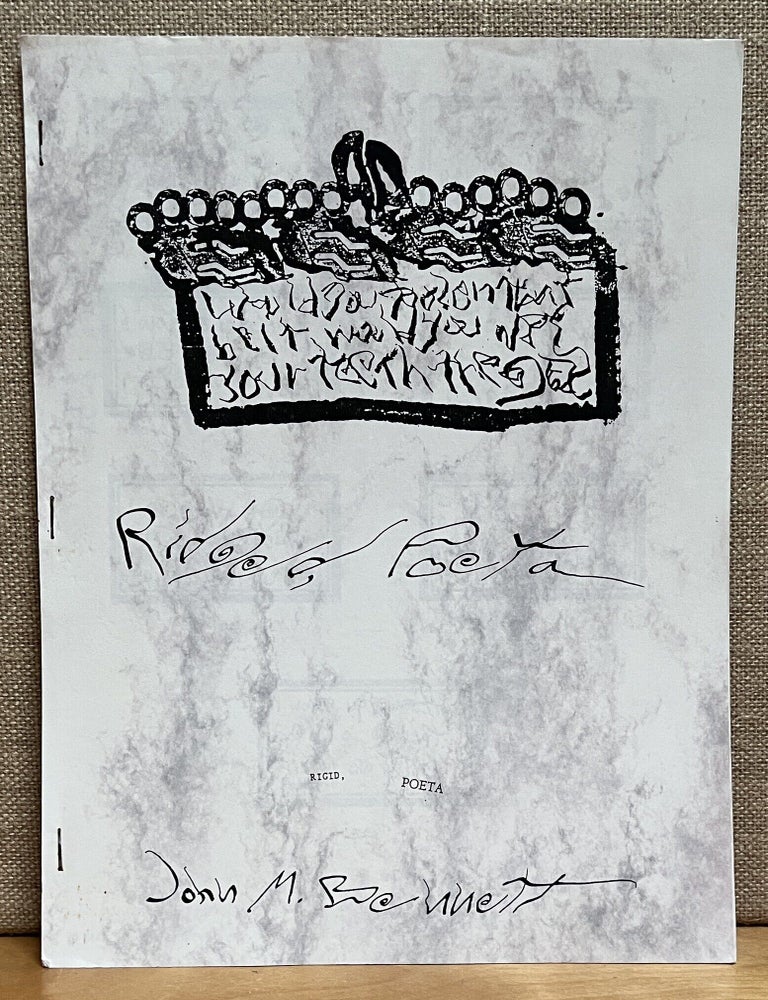 would you
but would you
your teeth
Ridged Poeta
RIGID, POETA
John M. Bennett